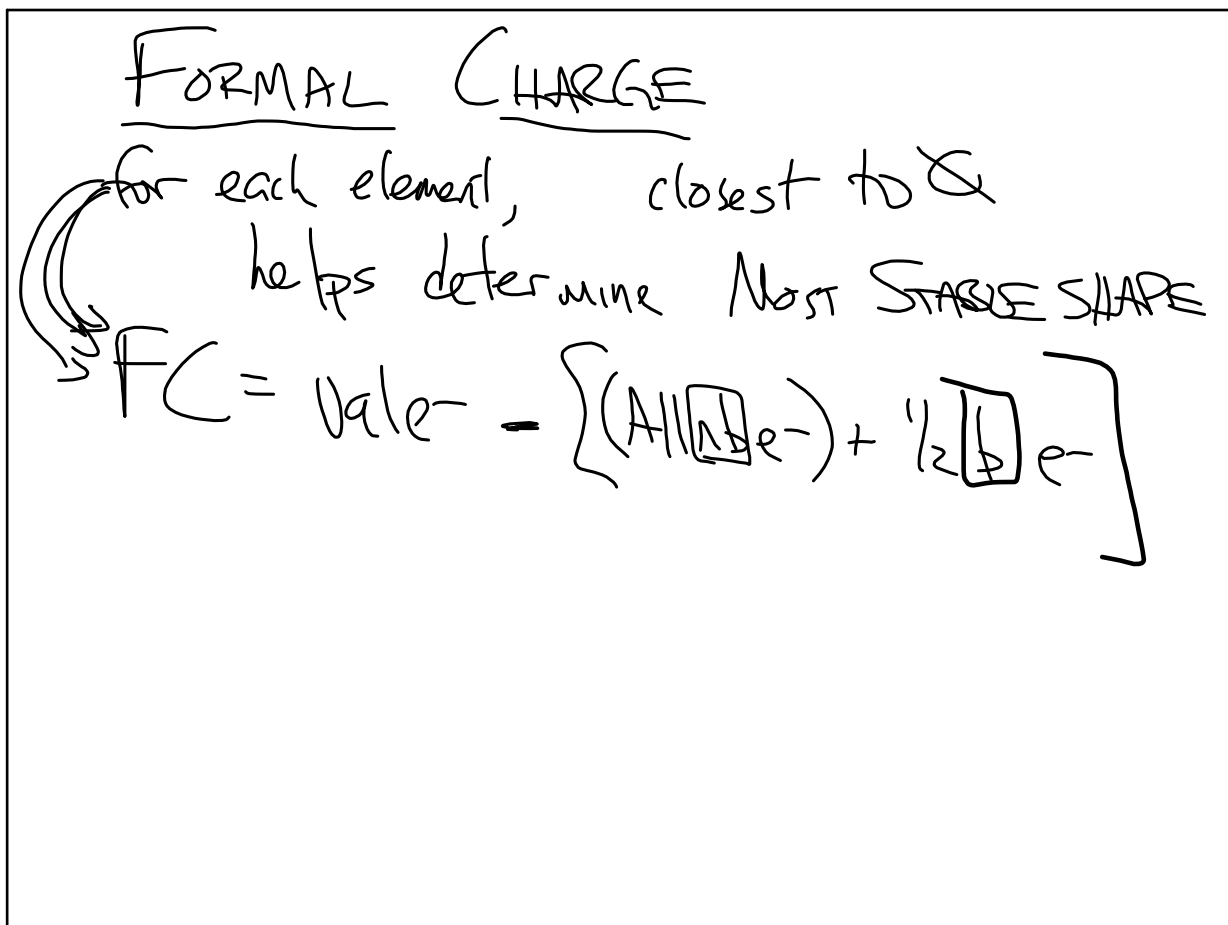 FORMAL CHARGE
for each element, closest to Ø
helps determine MOST STABLE SHAPE
FC = Val e- - [(All nb e-) + 1/2 b e-]